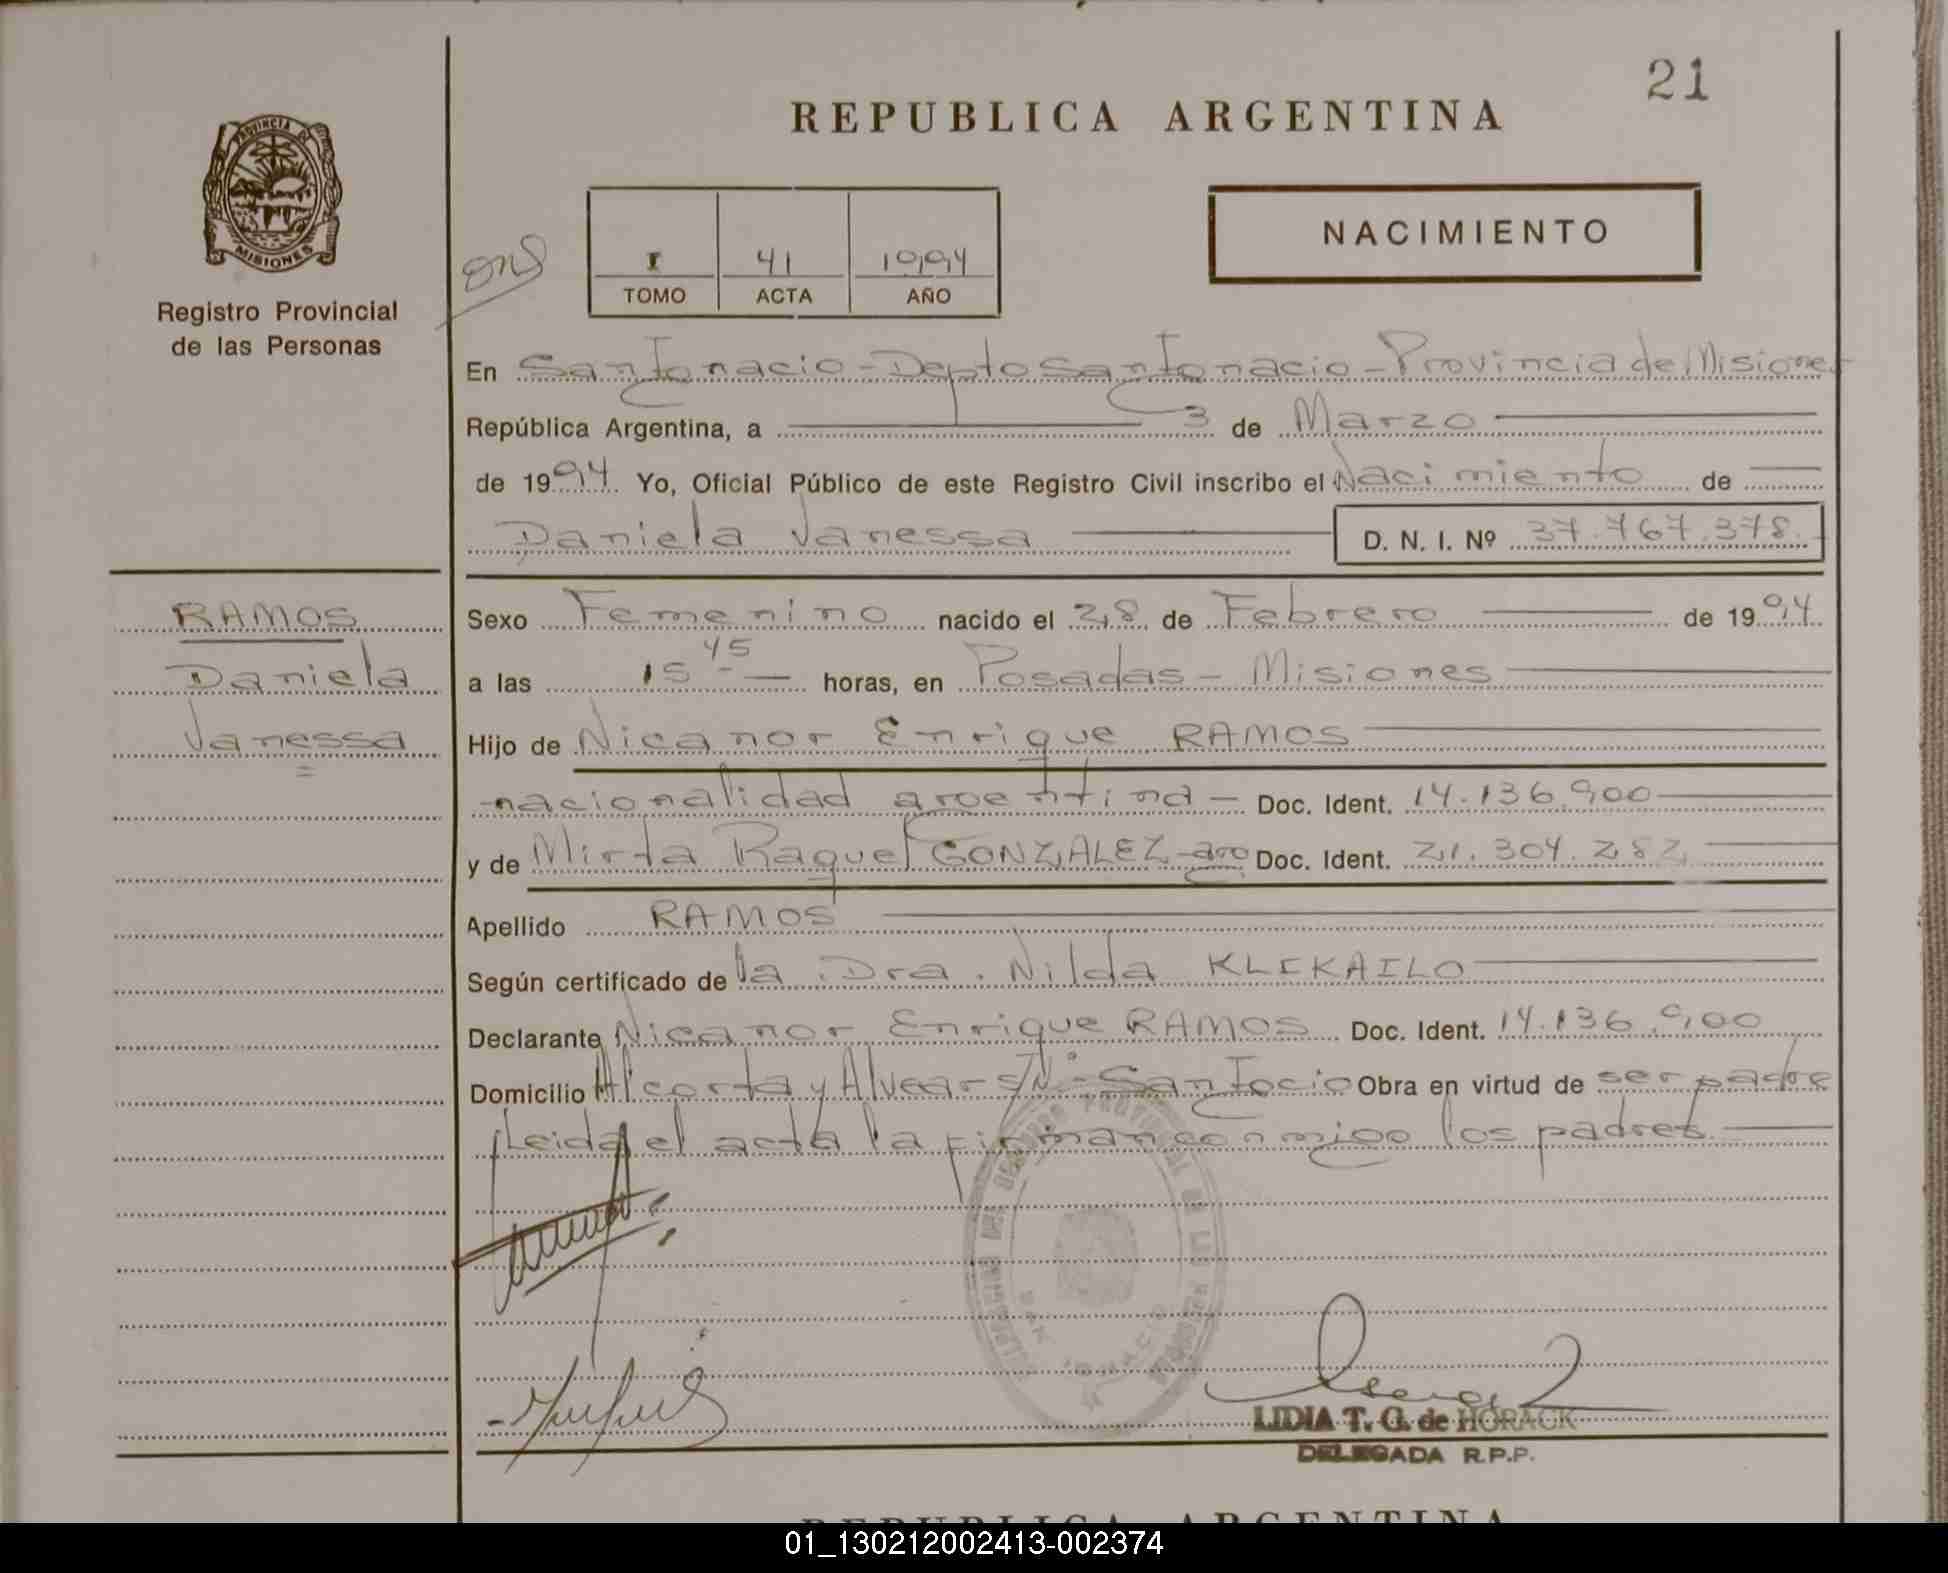 21
REPUBLICA ARGENTINA
PROVINCIA DE
MISIONES
Registro Provincial
de las Personas
NACIMIENTO
I 41 1994
TOMO ACTA AÑO
En San Ignacio - Depto San Ignacio - Provincia de Misiones
República Argentina, a 3 de Marzo
de 1994 Yo, Oficial Público de este Registro Civil inscribo el Nacimiento de
Daniela Vanessa D. N. I. Nº 37.767.378.
RAMOS
Daniela
Vanessa
Sexo Femenino nacido el 28 de Febrero de 1994
a las 15 45 horas, en Posadas - Misiones
Hijo de Nicanor Enrique RAMOS
nacionalidad argentina - Doc. Ident. 14.136.900
y de Mirta Raquel GONZALEZ - arg. Doc. Ident. 21.304.282
Apellido RAMOS
Según certificado de la Dra. Nilda KLEKAILO
Declarante Nicanor Enrique RAMOS Doc. Ident. 14.136.900
Domicilio Alcorta y Alvear S/Nº - San Igcio Obra en virtud de ser padre
Leida el acta la firman conmigo los padres
SAN IGNACIO
LIDIA T. G. de HORACK
DELEGADA R.P.P.
REPUBLICA ARGENTINA
01_130212002413-002374